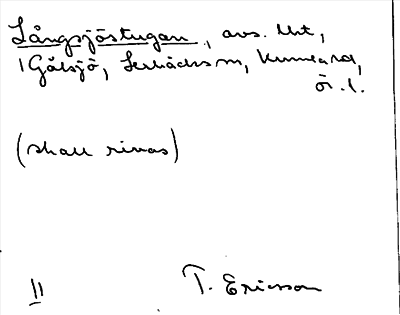 Långsjöstugan, avs. lht,
1 Gålsjö, Lerbäcks sn, Kumla hd,
ör. l.
(skall rivas)
11
T. Ericsson